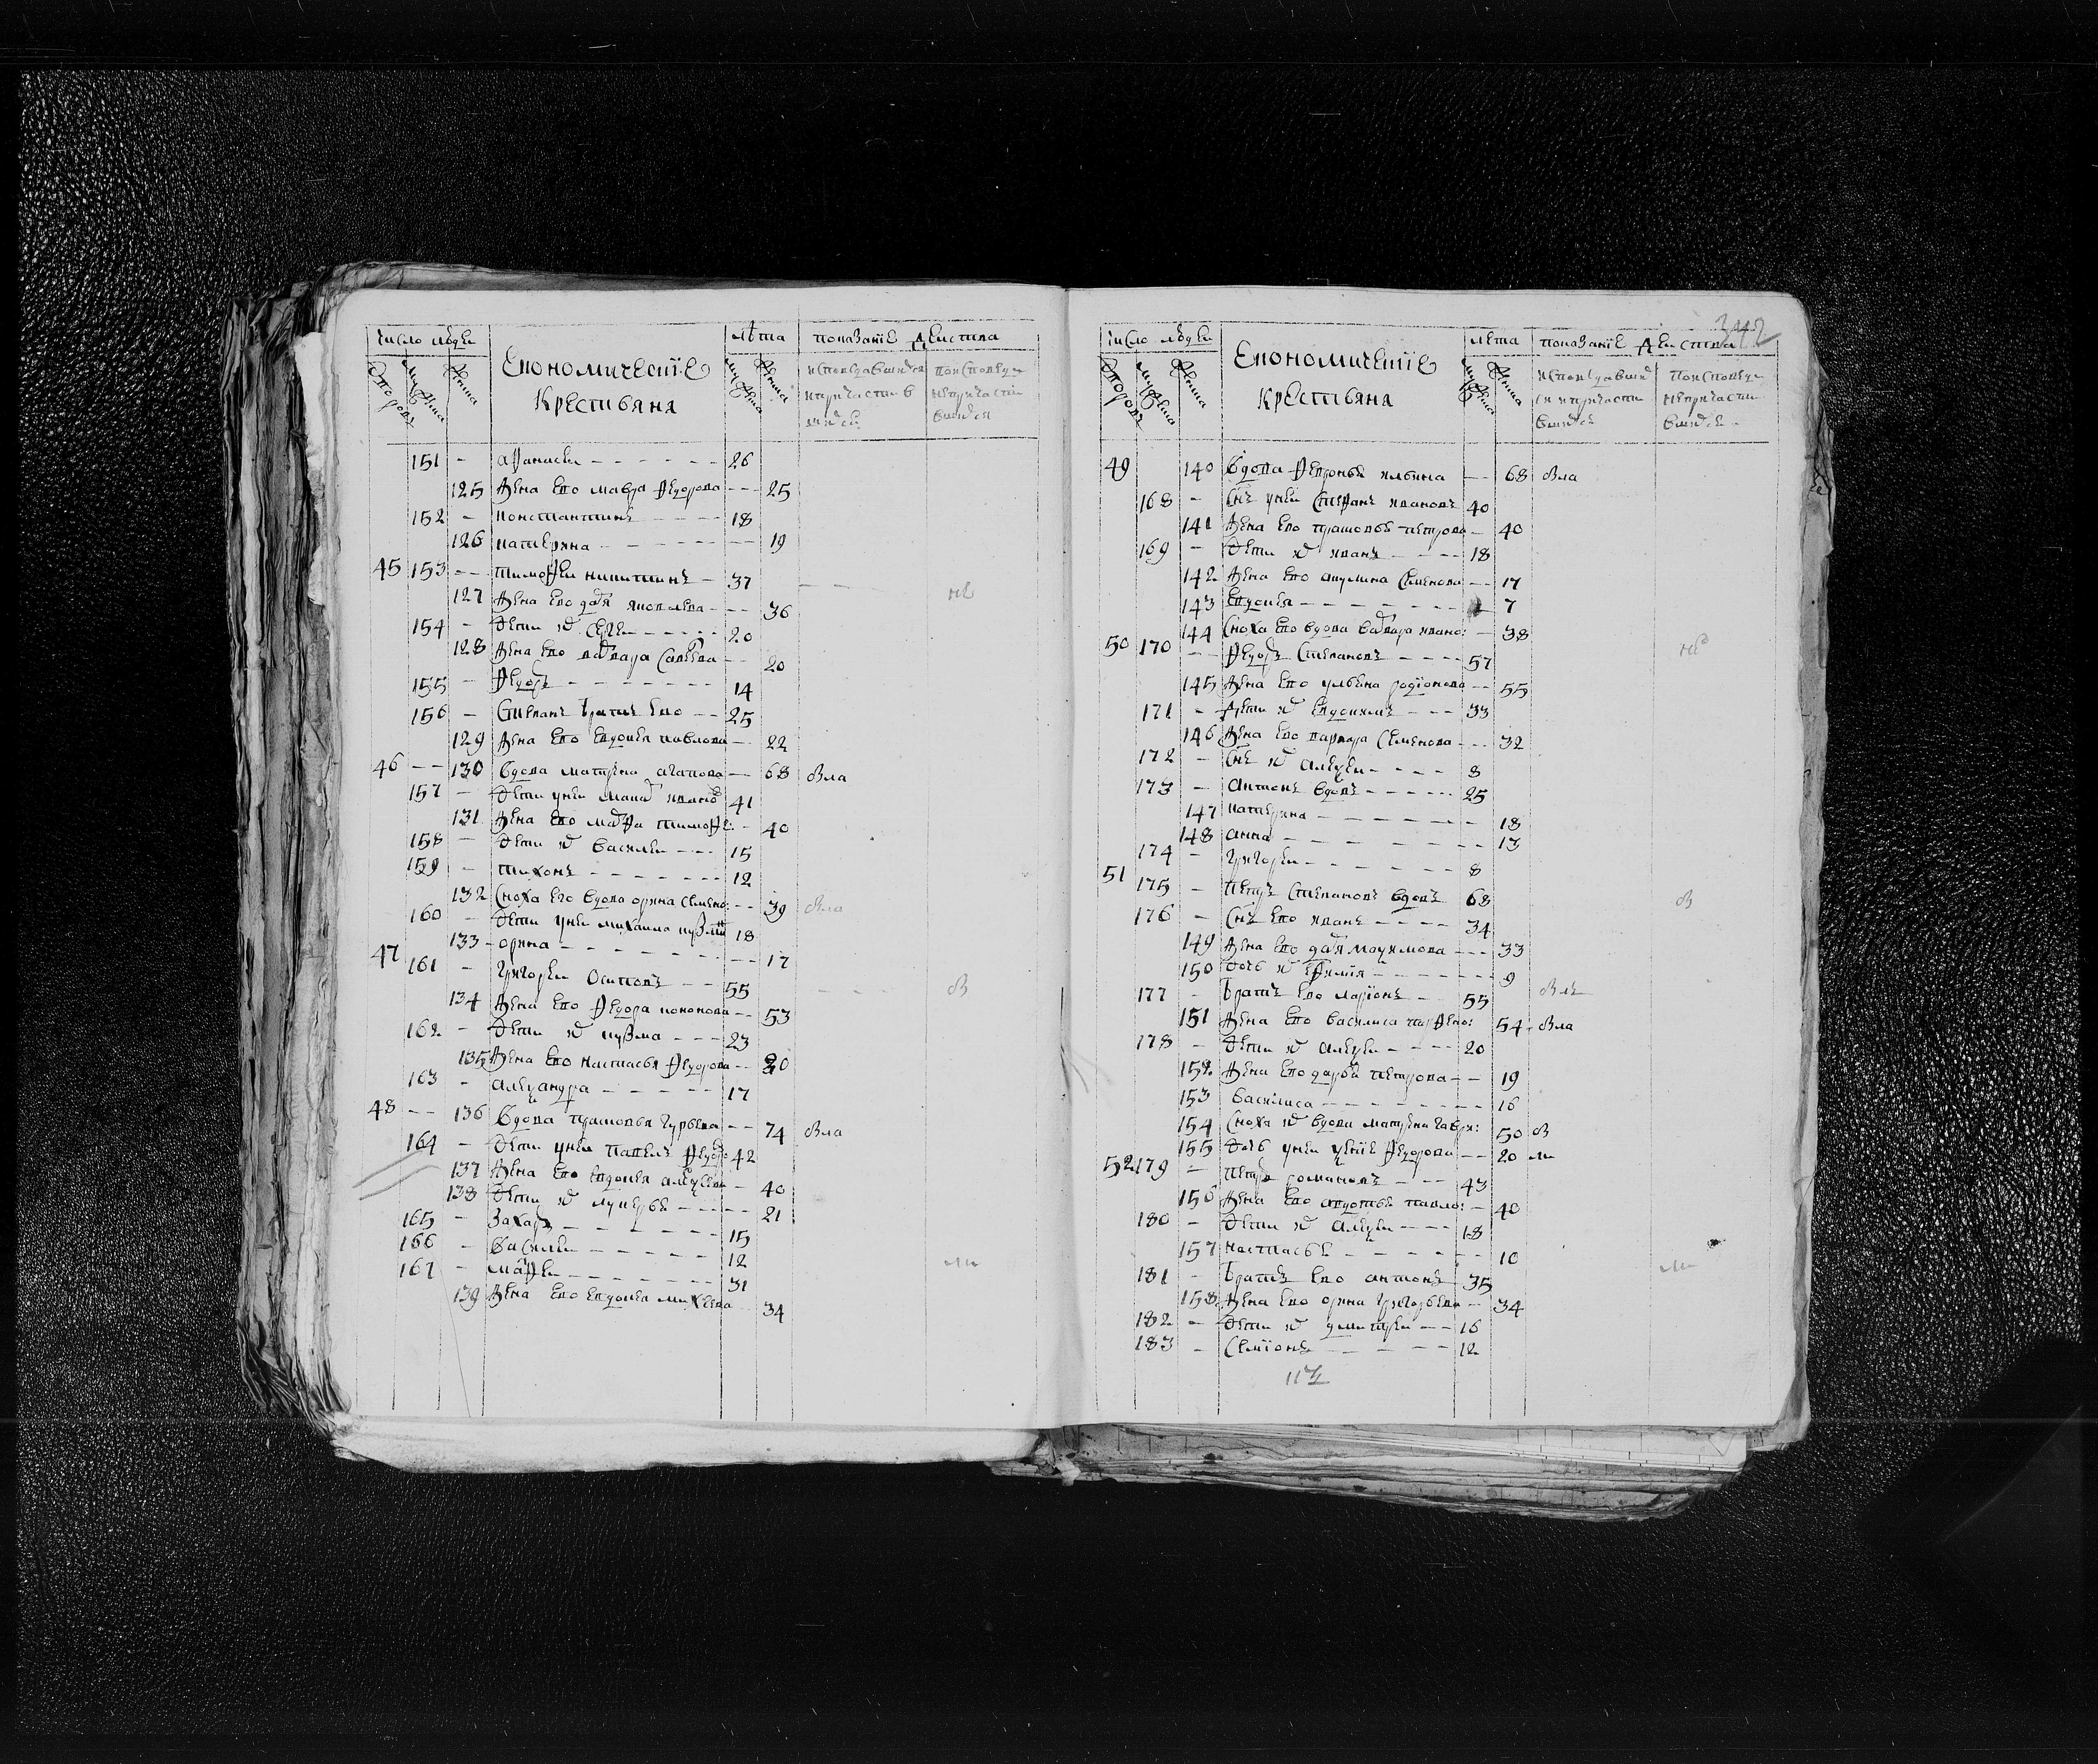 число людей лѣта показание действа
дворовъ мужеска женска Економические мужеска женска
Крестьяна
151 - афанасеи - - - 26
125 жена ево мавра федорова - - 25
152 - константинъ - - - 18
126 катерина - - - 19
45 153 - - тимофеи никитинъ - 37
127 жена ево дарья яковлева - - 36
154 - дети их сергеи - - - 20
128 жена ево варвара савельева - - 20
155 - федоръ - - - 14
156 - степанъ братъ ево - - 25
129 жена ево евдокия павлова - 22
46 - - 130 вдова матрена агапова - 68 вла
157 - дети унеи иванов 41
131 жена ево марфа тимофе: - 40
158 - дети их василеи - - - 15
159 - тихонъ - - - 12
132 сноха его вдова орина семено: - - 39 вла
160 - дети унеи михаила кузмин 18
133 - орина - - - 17
47 161 - григореи осиповъ - - 55 в
134 жена ево федора кононова - - 53
162 - дети их кузма - - - 23
135 жена ево настасья федорова - - 20
163 - александра - - - 17
48 - - 136 вдова прасковья гурьева - - 74 вла
164 - дети унеи павелъ федоро 42
137 жена ево евдокия алексеева - 40
138 дети их лукерья - - - 21
165 - захаръ - - - 15
166 - василеи - - - 12
167 - марфеи - - - 31
139 жена ево евдокия михеева - 34
342
число людей лѣта показание действа
дворовъ мужеска женска Економические мужеска женска
Крестьяна
49 140 вдова февронья ильина - - 68 вла
168 - снъ унеи степанъ ивановъ 40
141 жена ево прасковья петрова - 40
169 - дети их иванъ - - - 18
142 жена ево акулина семенова - - 17
143 евдокия - - - 7
144 сноха ево вдова варвара ивано: - 38
50 170 - - федоръ степановъ - - - 57
145 жена ево ульяна родионова - - 55
171 - дети их евдокимъ - - - 33
146 жена ево варвара семенова - - - 32
172 - снъ их алексеи - - - 8
173 - антонъ вдовъ - - - 25
147 катерина - - - 18
148 анна - - - 13
174 - григореи - - - 8
51 175 - петръ степановъ вдовъ 68 в
176 - снъ ево иванъ - - - 34
149 жена ево дарья максимова - - - 33
150 дочь их ефимия - - - 9
177 - братъ ево ларионъ - 55
151 жена ево василиса парфено: 54 - вла
178 - дети их алексеи - - - 20
152 жена ево дарья петрова - - 19
153 василиса - - - 16
154 сноха их вдова матрена гаври: 50 в
155 дочь унеи федорова - - 20
52 179 - петръ романовъ - - - 43
156 жена ево авдотья павло: - 40
180 - дети их алексеи - - - 18
157 настасья - - - 10
181 - братъ ево антонъ 35
158 жена ево орина григорьева - 34
182 - дети их дмитреи - - 16
183 - семионъ - - - 12